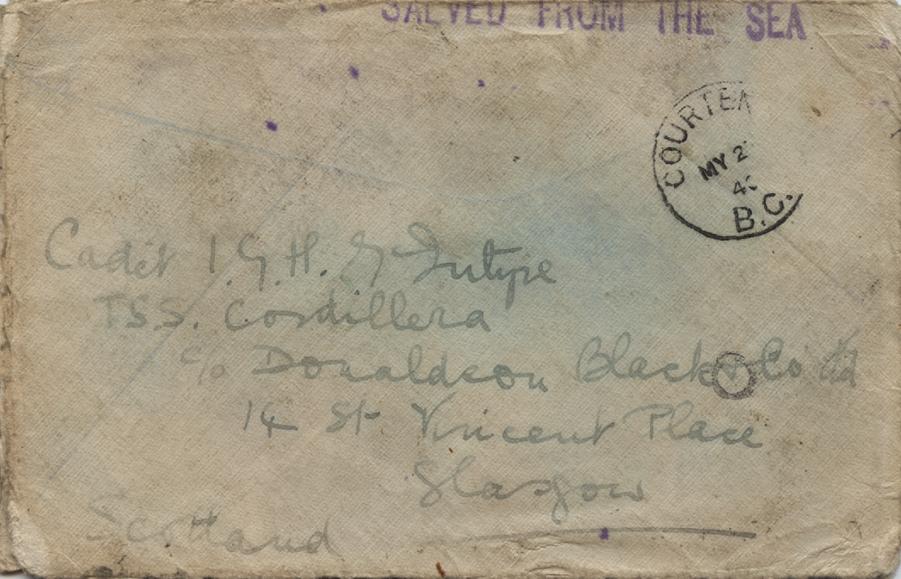 SALVED FROM THE SEA
COURTEN
MY 2
4
B.C.
Cadet I G. H. McIntyre
T.S.S. Cordillera
c/o Donaldson Black & Co Ltd
14 St Vincent Place
Glasgow
Scotland